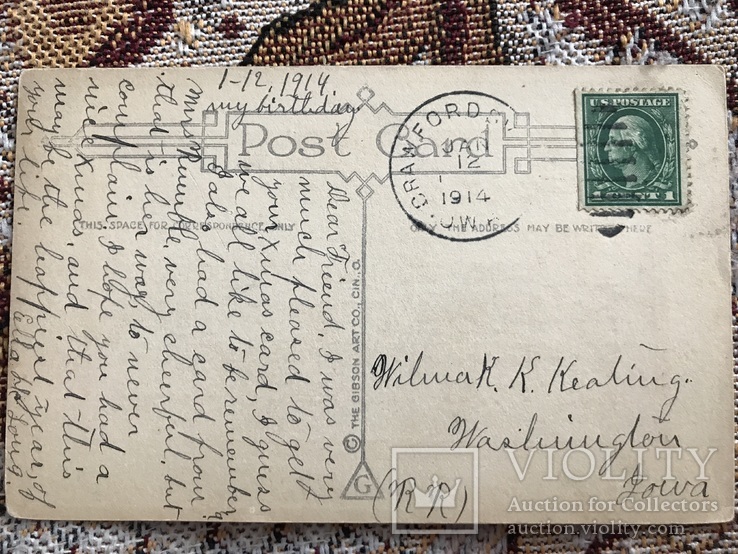 1-12, 1914.
my birthday
Post Card
THIS SPACE FOR CORRESPONDENCE ONLY
ONLY THE ADDRESS MAY BE WRITTEN HERE
CRAWFORD
JAN
12
1914
IOWA
U.S. POSTAGE
1
Dear Friend, I was very
much pleased to get
your xmas card, I guess
we all like to be remembered
I also had a card from
Mrs Rumble, very cheerful, but
that is her way to never
complain. I hope you had a
nice xmas, and that this
may be the happiest year of
your life.
Ella
© THE GIBSON ART CO., CIN., O.
G
Wilma K. K. Keating.
Washington
Iowa
(R R)
VIOLITY
Auction for Collectors
www.violity.com
auction.violity.com